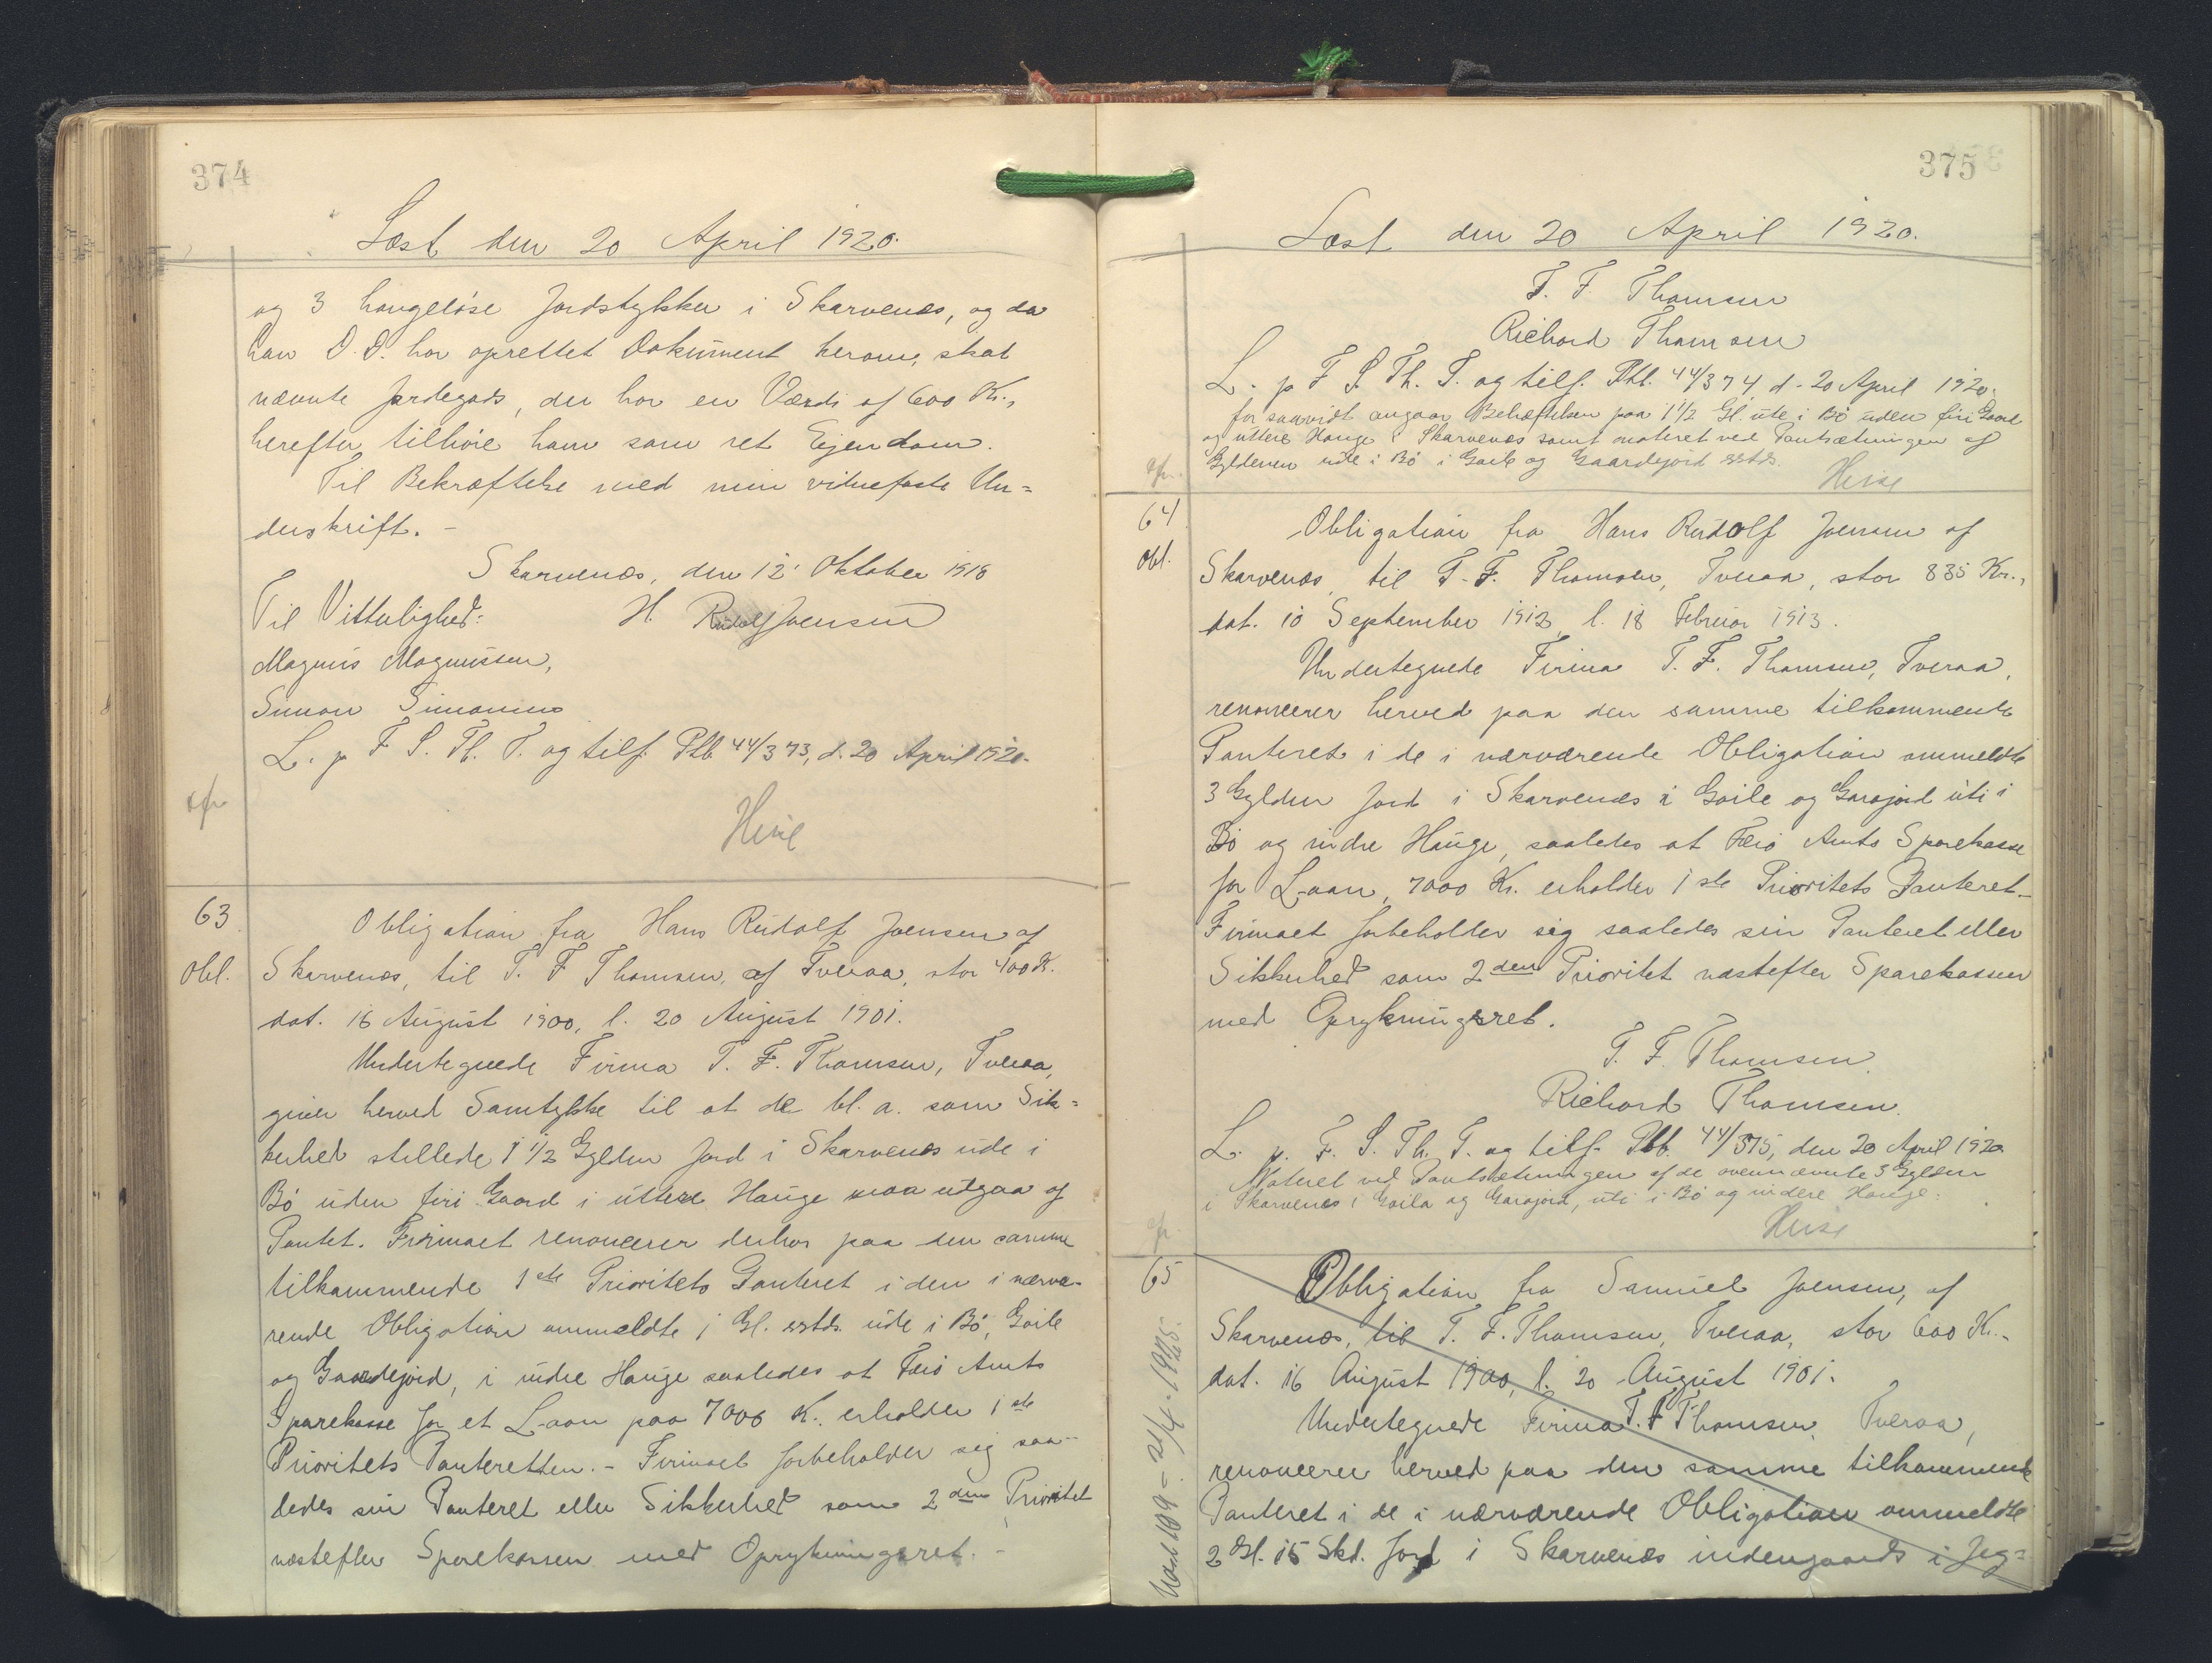 374
Læst den 20 April 1920.
og 3 haugeløse Jordstykker i Skarvenes, og da
han D. D. har oprettet Dokument herom, skal
nævnte Jordegods, der har en Værdi af 600 Kr.,
herefter tilhøre ham som ret Ejendom.
Til Bekræftelse med min vidnefaste Un=
derskrift. -
Skarvenes, den 12' Oktober 1918
Til Vitterlighed: H. Rudolf Joensen
Magnus Magnussen,
Simon Simonsen
L. p F. S. Th. T. og tilf. Ptb. 44/373, d. 20 April 1920.
Heise
63
Obl.
Obligation fra Hans Rudolf Joensen af
Skarvenes, til T. F Thomsen, af Tveraa, stor 400 Kr.
dat. 16 August 1900, l. 20 August 1901.
Undertegnede Firma T. F. Thomsen, Tveraa,
giver herved Samtykke til at de bl. a. som Sik=
kerhed stillede 1 1/2 Gylden Jord i Skarvenes ude i
Bø uden firi Gaard i uttere Hauge maa udgaa af
Pantet. Firmaet renoncerer derhos paa den samme
tilkommende 1ste Prioritets Panteret i den i nærvæ-
rende Obligation ommeldte 1 Gl. sstds. ude i Bø, Goile
og Gaardejord, i indre Hauge saaledes at Færø Amts
Sparekasse for et Laan paa 7000 K. erholder 1ste
Prioritets Panteretten. - Firmaet forbeholder sig saa-
ledes sin Panteret eller Sikkerhed som 2den Prioritet
næstefter Sparekassen med Oprykningsret. -
375
Læst den 20 April 1920.
T. F. Thomsen
Richard Thomsen
L. p F. S. Th. T. og tilf. Ptb. 44/374 d. 20 April 1920.
for saavidt angaar Behæftelsen paa 1 1/2 Gl. ute i Bø uden firi Gaard
og uttere Hauge i Skarvenes samt noteret ved Pantsætningen af
Gyldenen ude i Bø i Goile og Gaardejord sstds.
Heise
64
Obl.
Obligation fra Hans Rudolf Joensen af
Skarvenes til T. F. Thomsen, Tveraa, stor 835 Kr.,
dat. 10 September 1912, l. 18 Februar 1913.
Undertegnede Firma T. F. Thomsen, Tveraa,
renoncerer herved paa den samme tilkommende
Panteret i de i nærværende Obligation ommeldte
3 Gylden Jord i Skarvenes i Goile og Garajord úti i
Bø og indre Hauge, saaledes at Færø Amts Sparekasse
for Laan, 7000 Kr. erholder 1ste Prioritets Panteret.-
Firmaet forbeholder sig saaledes sin Panteret eller
Sikkerhed som 2den Prioritet næstefter Sparekassen
med Oprykningsret.
T. F. Thomsen
Richard Thomsen
L. p. F. S. Th. T. og tilf. Ptb. 44/375, den 20 April 1920
Noteret ved Pantsætningen af de ovennævnte 3 Gylden
i Skarvenes i Goila og Garajord, uti i Bø og indere Hauge.
Heise
65
Obligation fra Samuel Joensen, af
Skarvenes, til T. F. Thomsen, Tveraa, stor 600 Kr.,
dat. 16 August 1900, l. 20 August 1901.
Undertegnede Firma T. F Thomsen, Tveraa,
renoncerer herved paa den samme tilkommende
Panteret i de i nærværende Obligation ommeldte
2 Gl. 15 Skd. Jord i Skarvenes indengaards i Jeg=